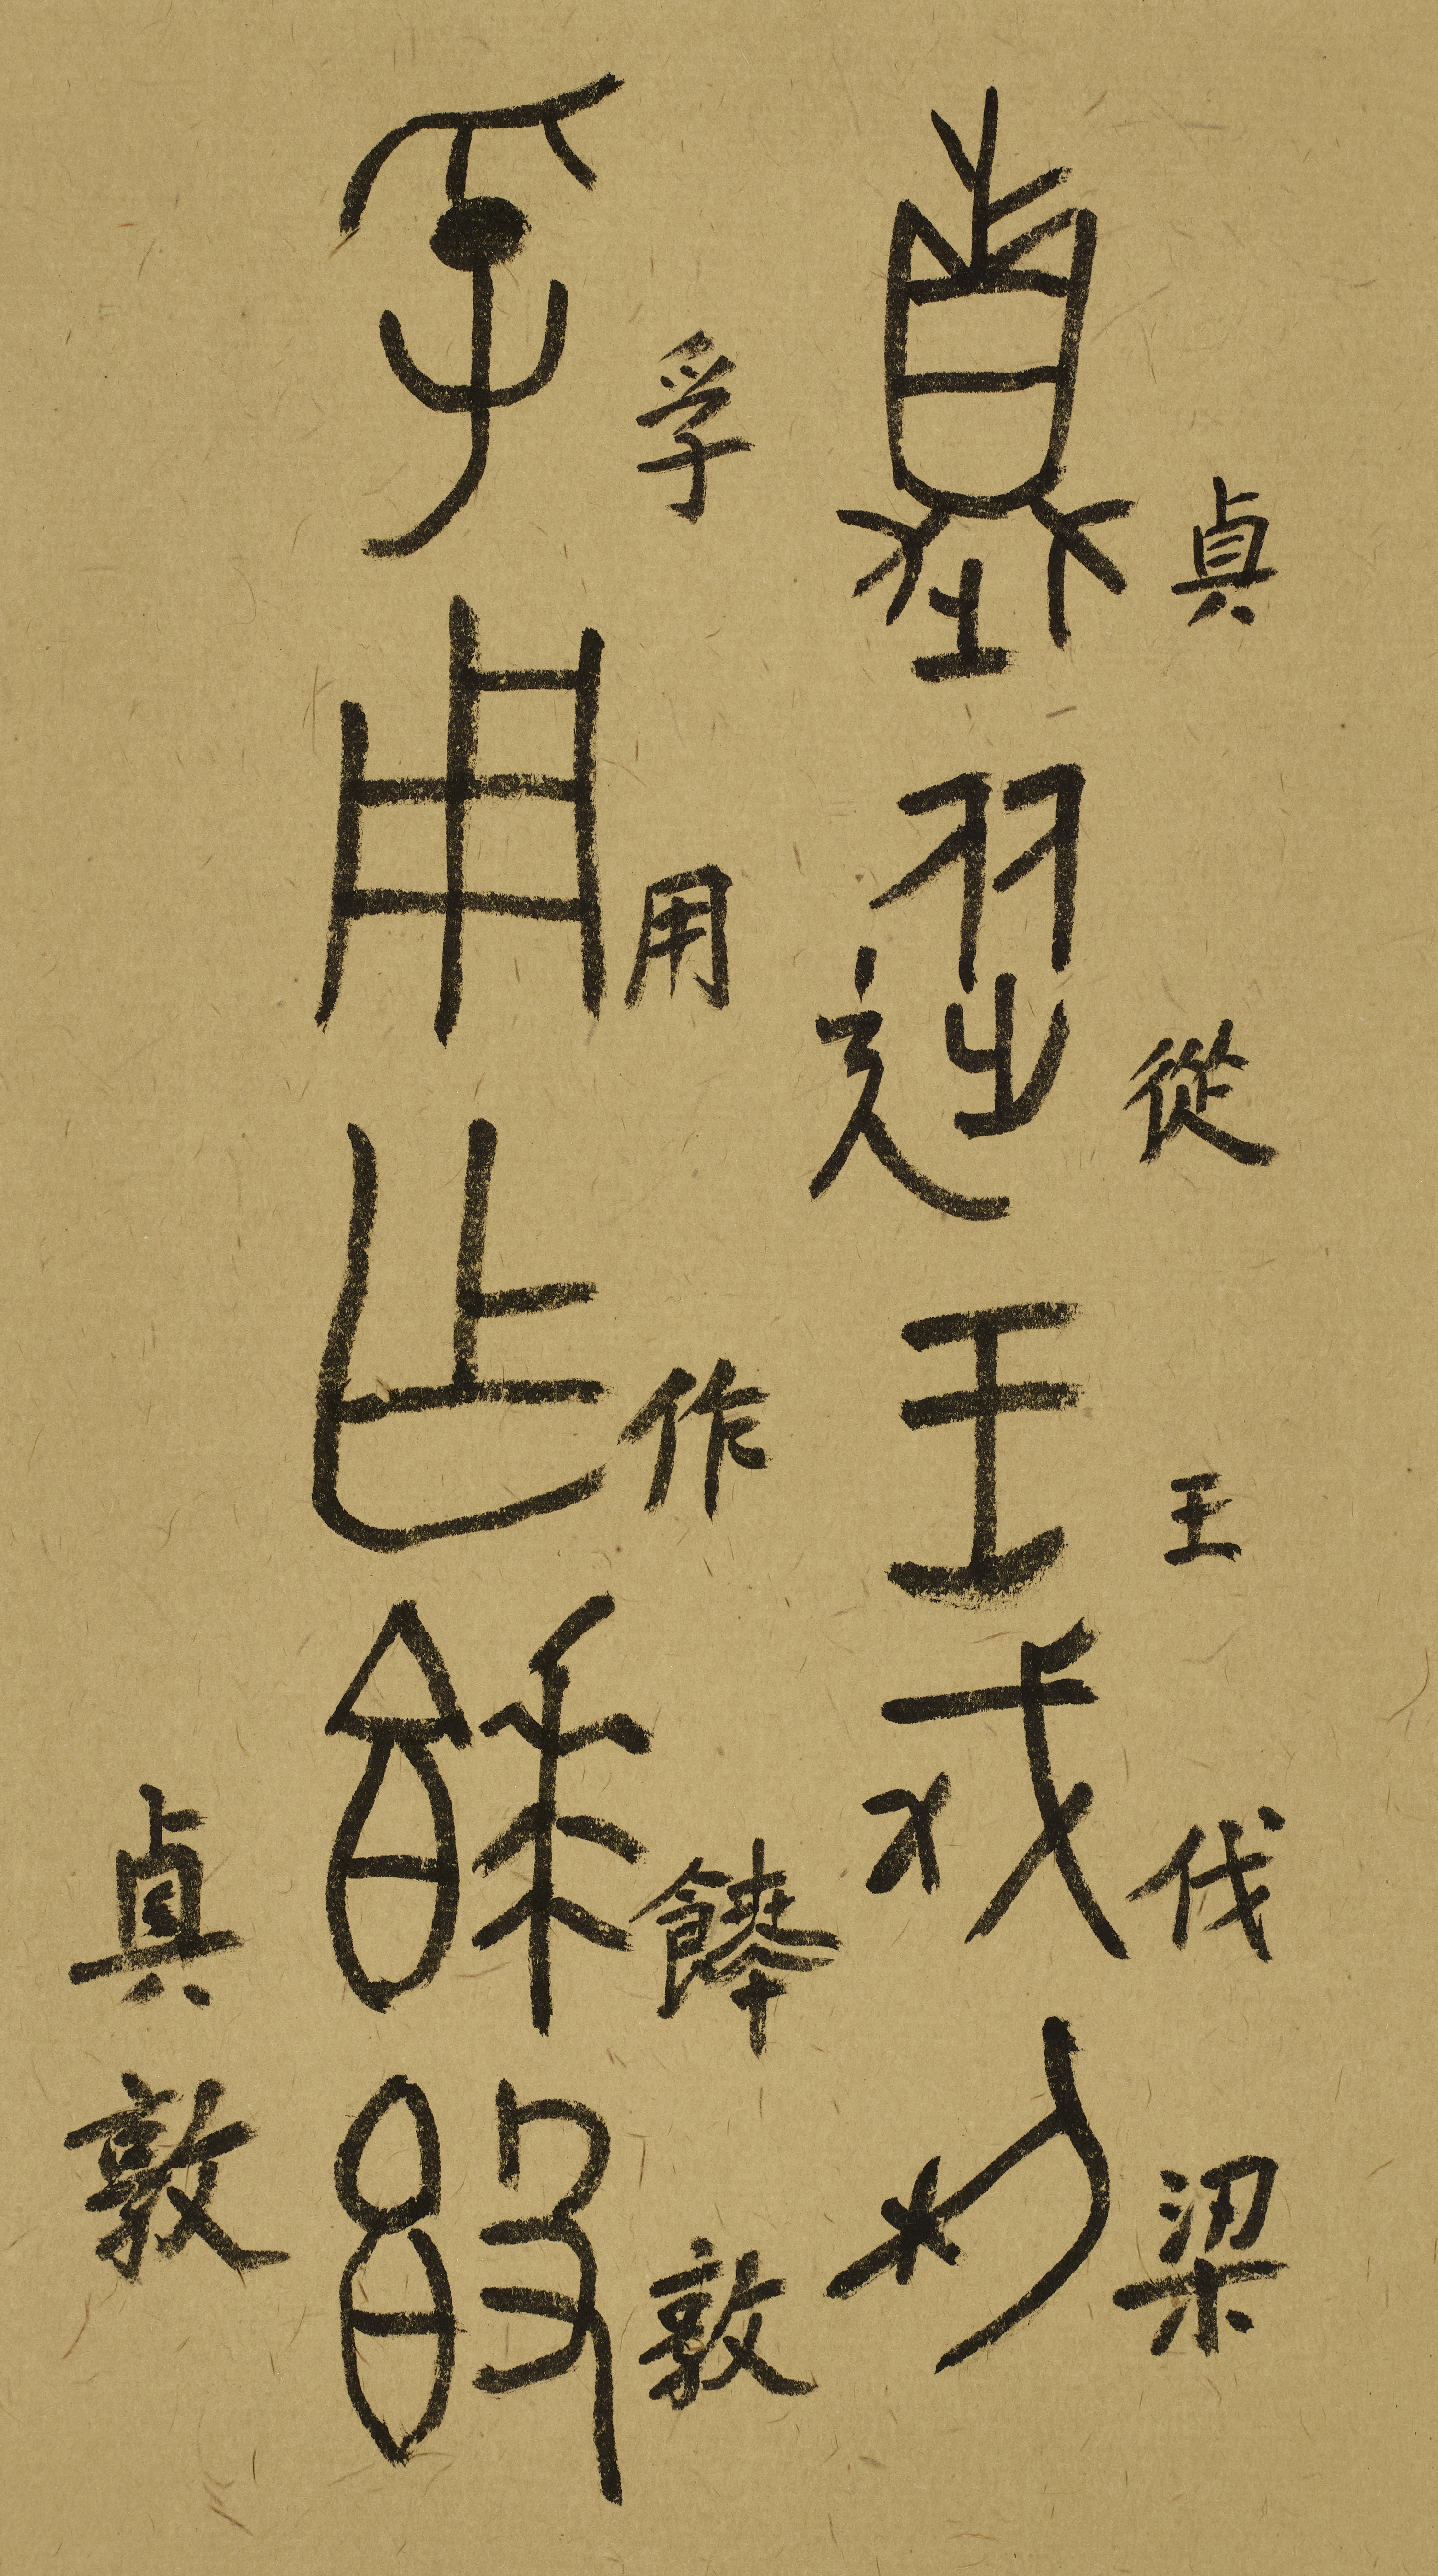 貞從王伐梁
孚用作餴敦
貞敦